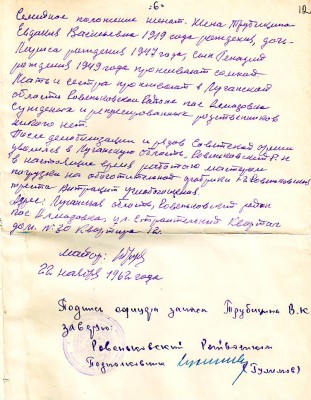 -6-
12
Семейное положение женат. Жена Трубицина
Евдокия Васильевна 1919 года рождения, дочь-
Лариса рождения 1947 года, сын Генадий
рождения 1949 года проживают со мной
Мать и сестра проживают в Луганской
области Ровеньковском районе пос
Сужденных и репрессированных родственников
никого нет.
После демобилизации из рядов Советской армии
уволился в Луганскую область, Ровеньковский р-н
в настоящие время работаю мастером
погрузки на обогатительной фабрике Ровеньковского
треста
Адрес: Луганская область, Ровеньковский район
пос ул. Строителей Квартал
дом. № 30 Квартира 12.
майор:
22 ноября 1962 года
Подпись офицера запаса Трубицина В.К
заверяю:
Ровеньковский Райвоенком
Подполковник